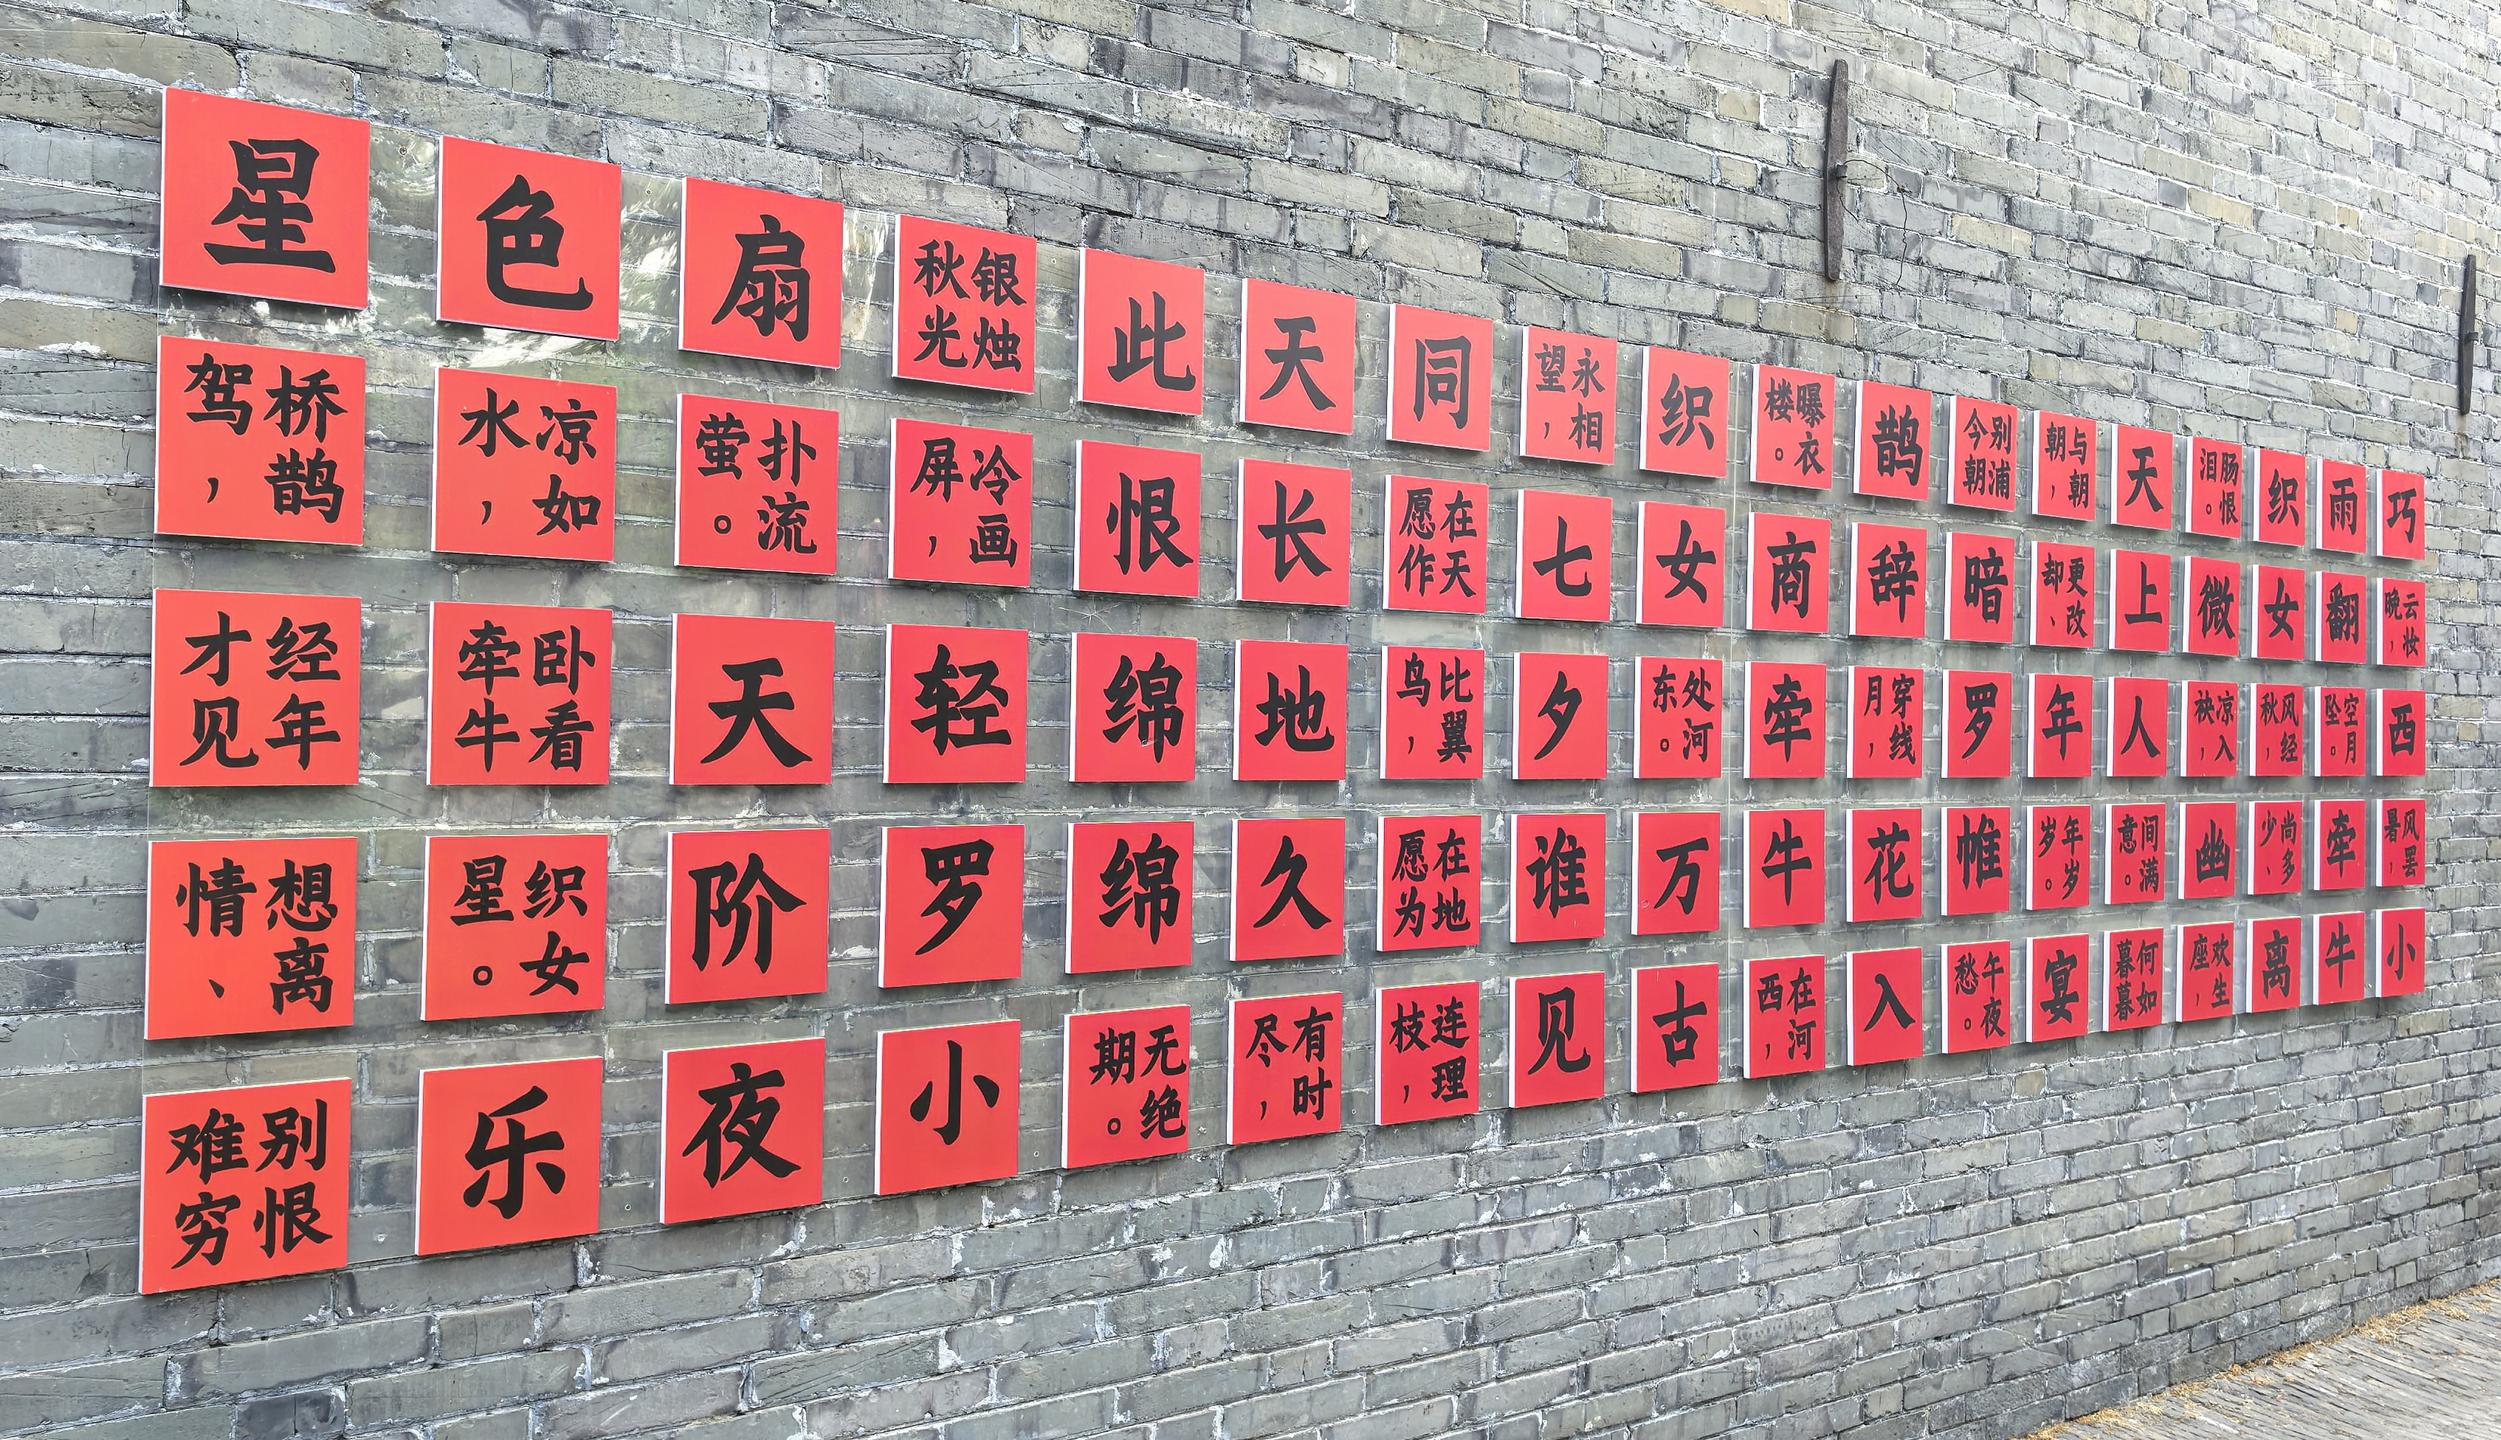 巧云妆晚，西风罢暑，小
雨翻空月坠。牵牛
织女风经秋，尚多少、离
肠恨泪。微凉入袂，幽欢生座，
天上人间满意。何如暮暮
与朝朝，更改却、年年岁岁。宴
别浦今朝暗罗帷午夜愁。
鹊辞穿线月，花入
曝衣楼。商牵牛在河西，
织女处河东。万古
永相望，七夕谁见
同在天愿作比翼鸟，在地愿为连理枝，
天长地久有时尽，
此恨绵绵无绝期。
银烛秋光冷画屏，轻罗小
扇扑流萤。天阶夜
色凉如水，卧看牵牛织女星。乐
星桥鹊驾，经年才见想离情、别恨难穷